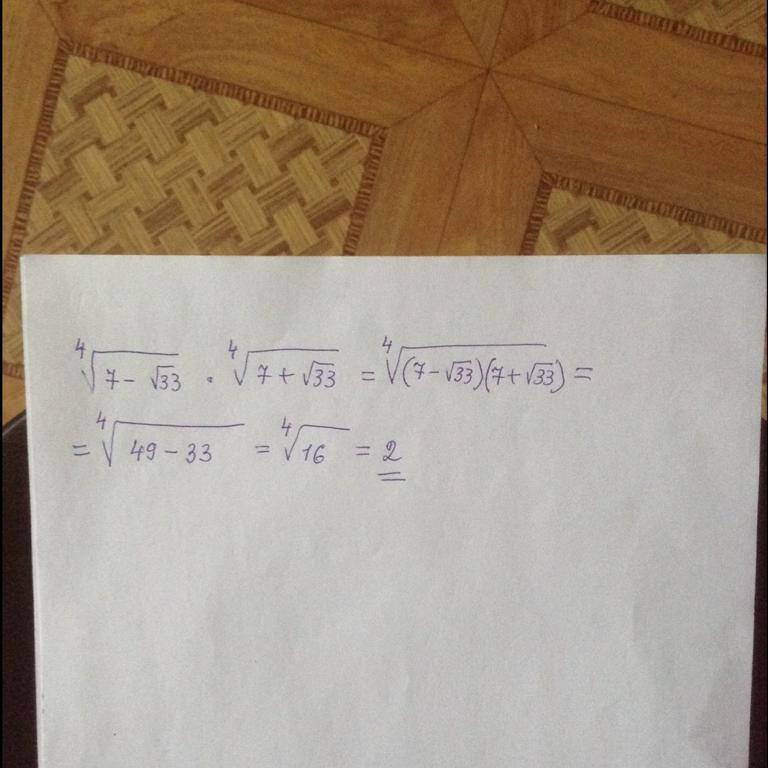 ⁴√(7 - √33) · ⁴√(7 + √33) = ⁴√((7 - √33)(7 + √33)) =
= ⁴√(49 - 33) = ⁴√16 = 2